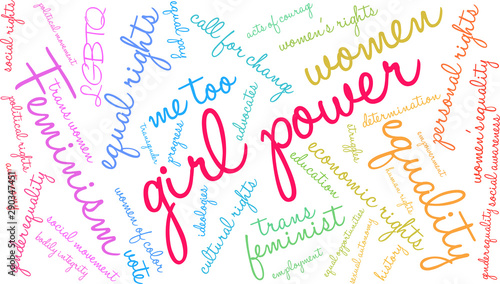 social rights
political movement
LGBTQ
equal rights
equal pay
call for change
acts of courag
women's rights
women
personal equality
women's equality
Feminism
trans women
me too
progress
advocates
girl power
determination
empowerment
equality
social awareness
political rights
genderequality
social movement
bodily integrity
women of color
vote
transgender
ideologies
cultural rights
education
economic rights
human rights
trans
feminist
employment
equal opportunities
sexual autonomy
history
Adobe Stock | #290347451